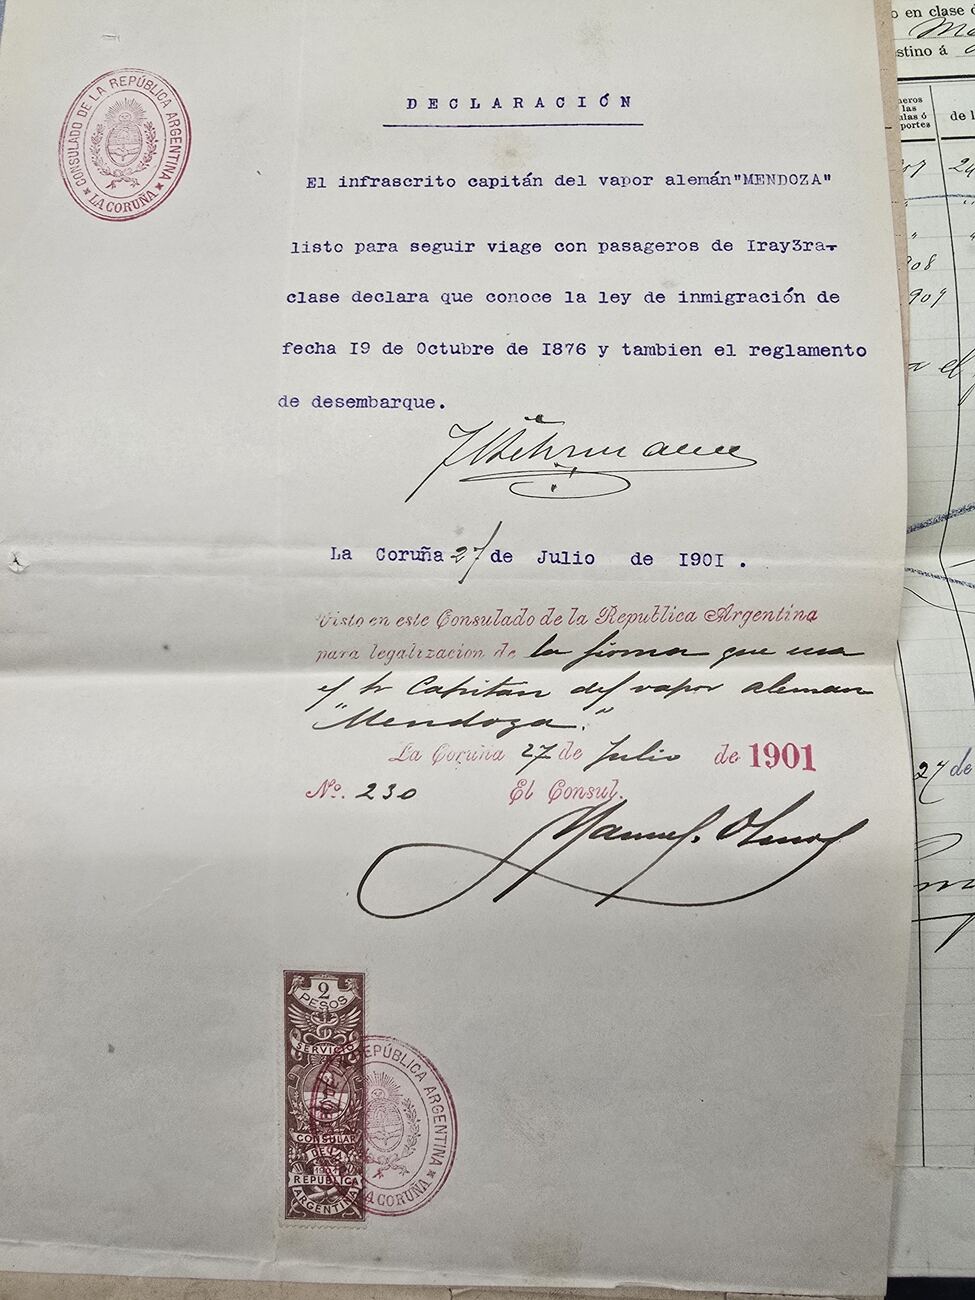 CONSULADO DE LA REPÚBLICA ARGENTINA
LA CORUÑA
DECLARACIÓN
El infrascrito capitán del vapor alemán"MENDOZA"
listo para seguir viage con pasageros de Iray3ra-
clase declara que conoce la ley de inmigración de
fecha I9 de Octubre de I876 y tambien el reglamento
de desembarque.
La Coruña 27 de Julio de I90I.
Visto en este Consulado de la Republica Argentina
para legalizacion de la firma que usa
el Sr Capitan del vapor aleman
"Mendoza."
La Coruña 27 de Julio de 1901
Nº. 230 El Consul.
2
PESOS
SERVICIO
CONSULAR
DE LA
REPÚBLICA
ARGENTINA
REPÚBLICA ARGENTINA
LA CORUÑA
o en clase d
stino á
neros
las
ulas ó
portes
de l
07
24
908
909
27 de